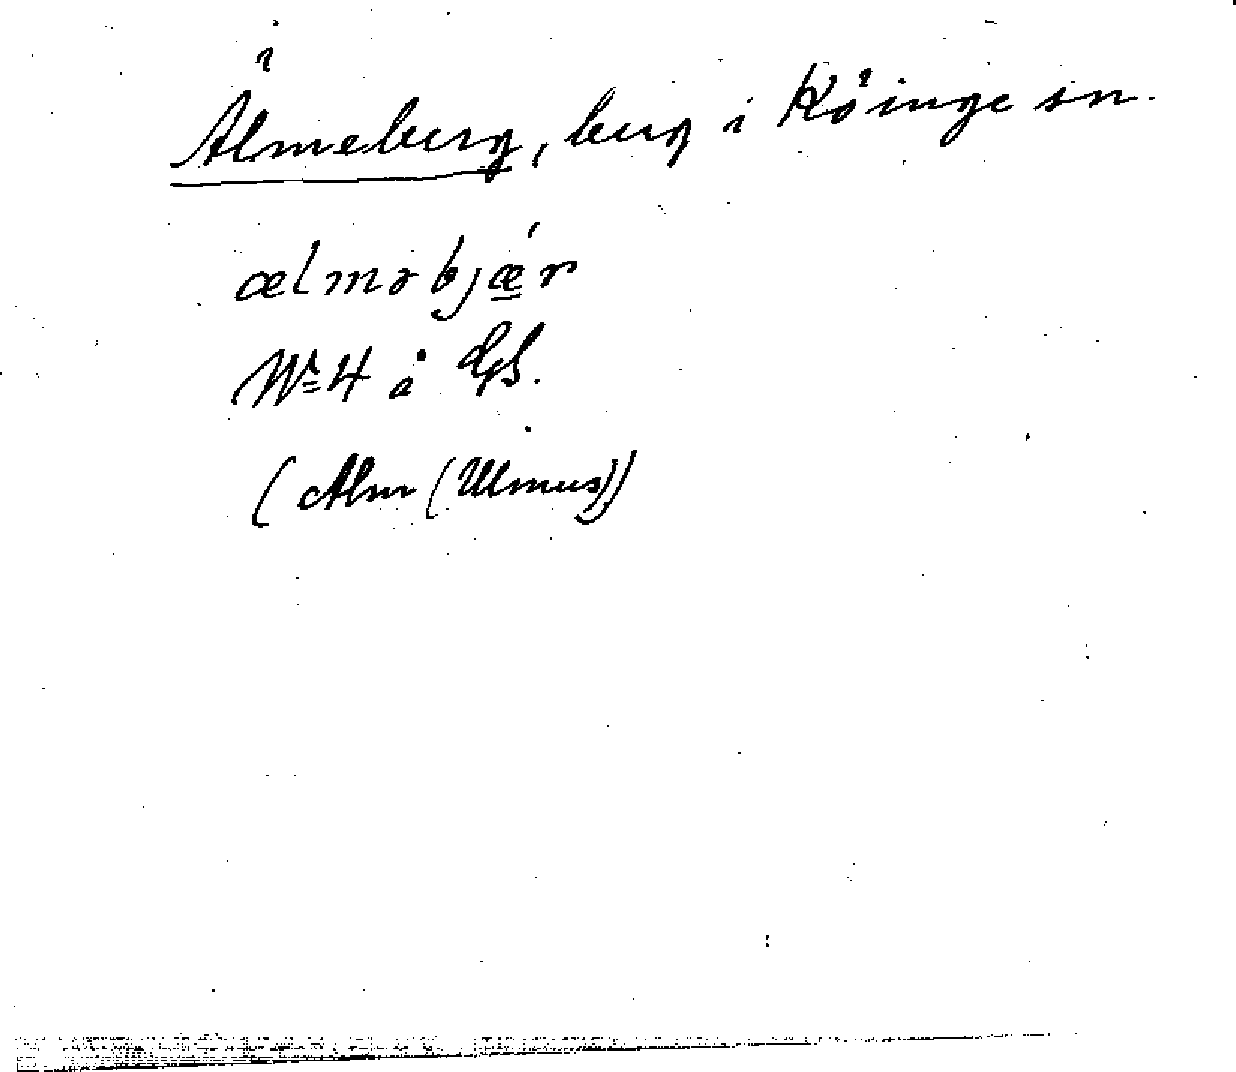 Älmeberg, berg i Köinge sn.
ælməbjǽr
No 4 å GS.
(Alm (Ulmus))